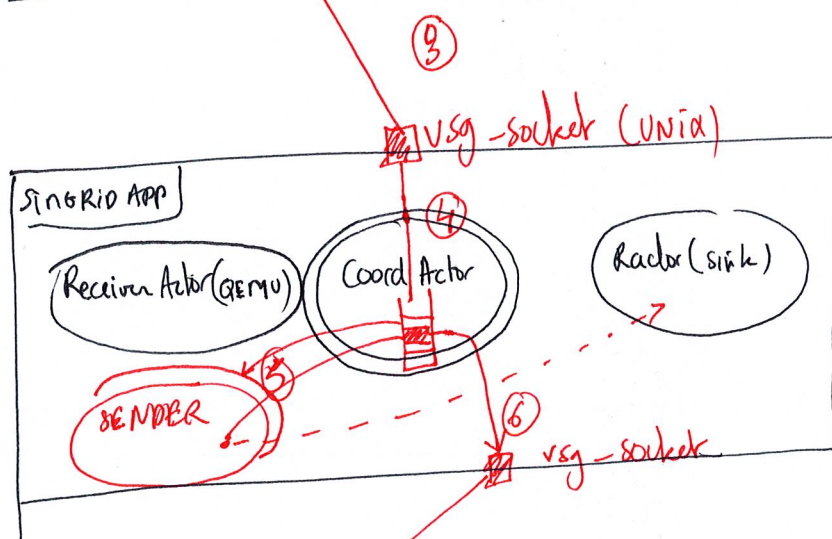 3
vsg-socket (UNIX)
SinGRiD APP
4
Receiver Actor (QEMU)
Coord Actor
Ractor (sink)
5
SENDER
6
vsg-socket